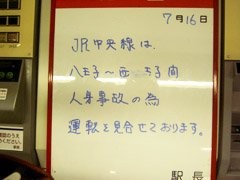 7月16日
JR中央線は、
八王子〜西八王子間
人身事故の為
運転を見合せております。
駅長